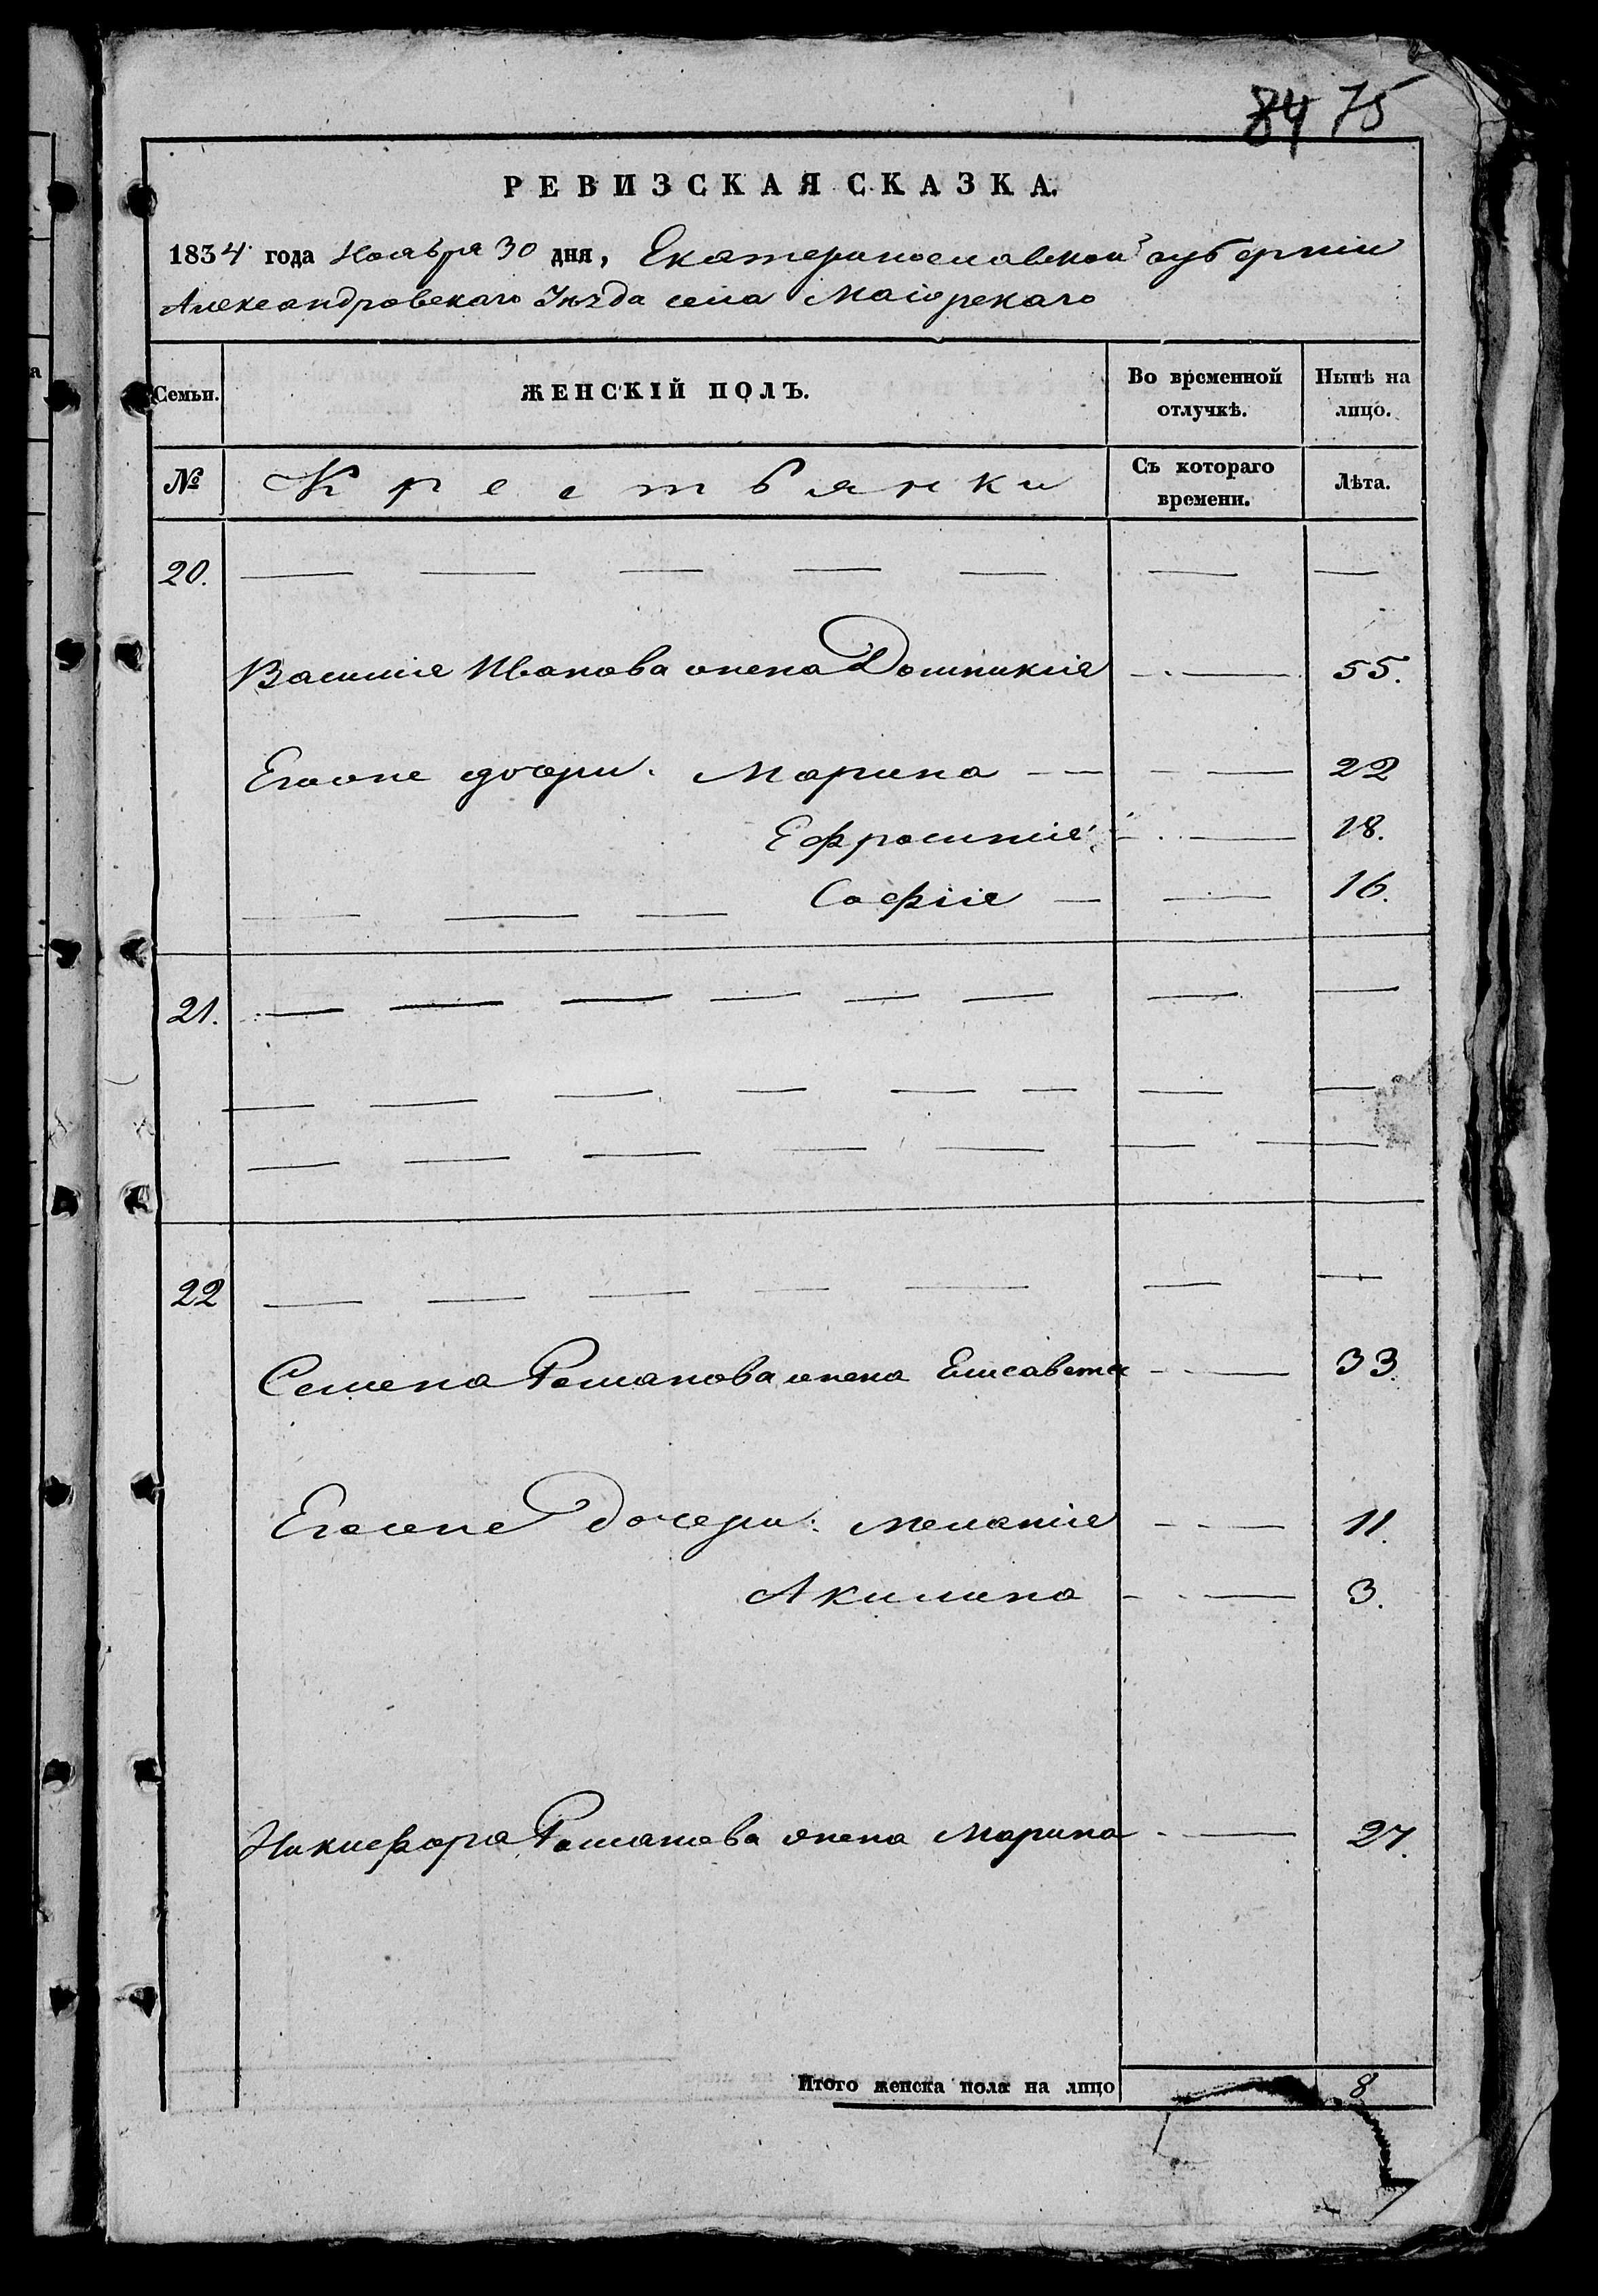 84 75
РЕВИЗСКАЯ СКАЗКА.
1834 года Ноября 30 дня, Екатеринославской губерніи
Александровскаго Уѣзда села Маіорскаго
Семьи. ЖЕНСКІЙ ПОЛЪ. Во временной отлучкѣ. Нынѣ на лицо.
№ Крестьянки Съ котораго времени. Лѣта.
20.
Василія Иванова жена Домникія 55.
Егоже дочери: Марина 22
Ефросинія 18.
Софія 16.
21.
22
Семена Романова жена Елисавета 33.
Егоже дочери: Меланія 11.
Акилина 3.
Никифора Романова жена Марина 27.
Итого женска пола на лицо 8